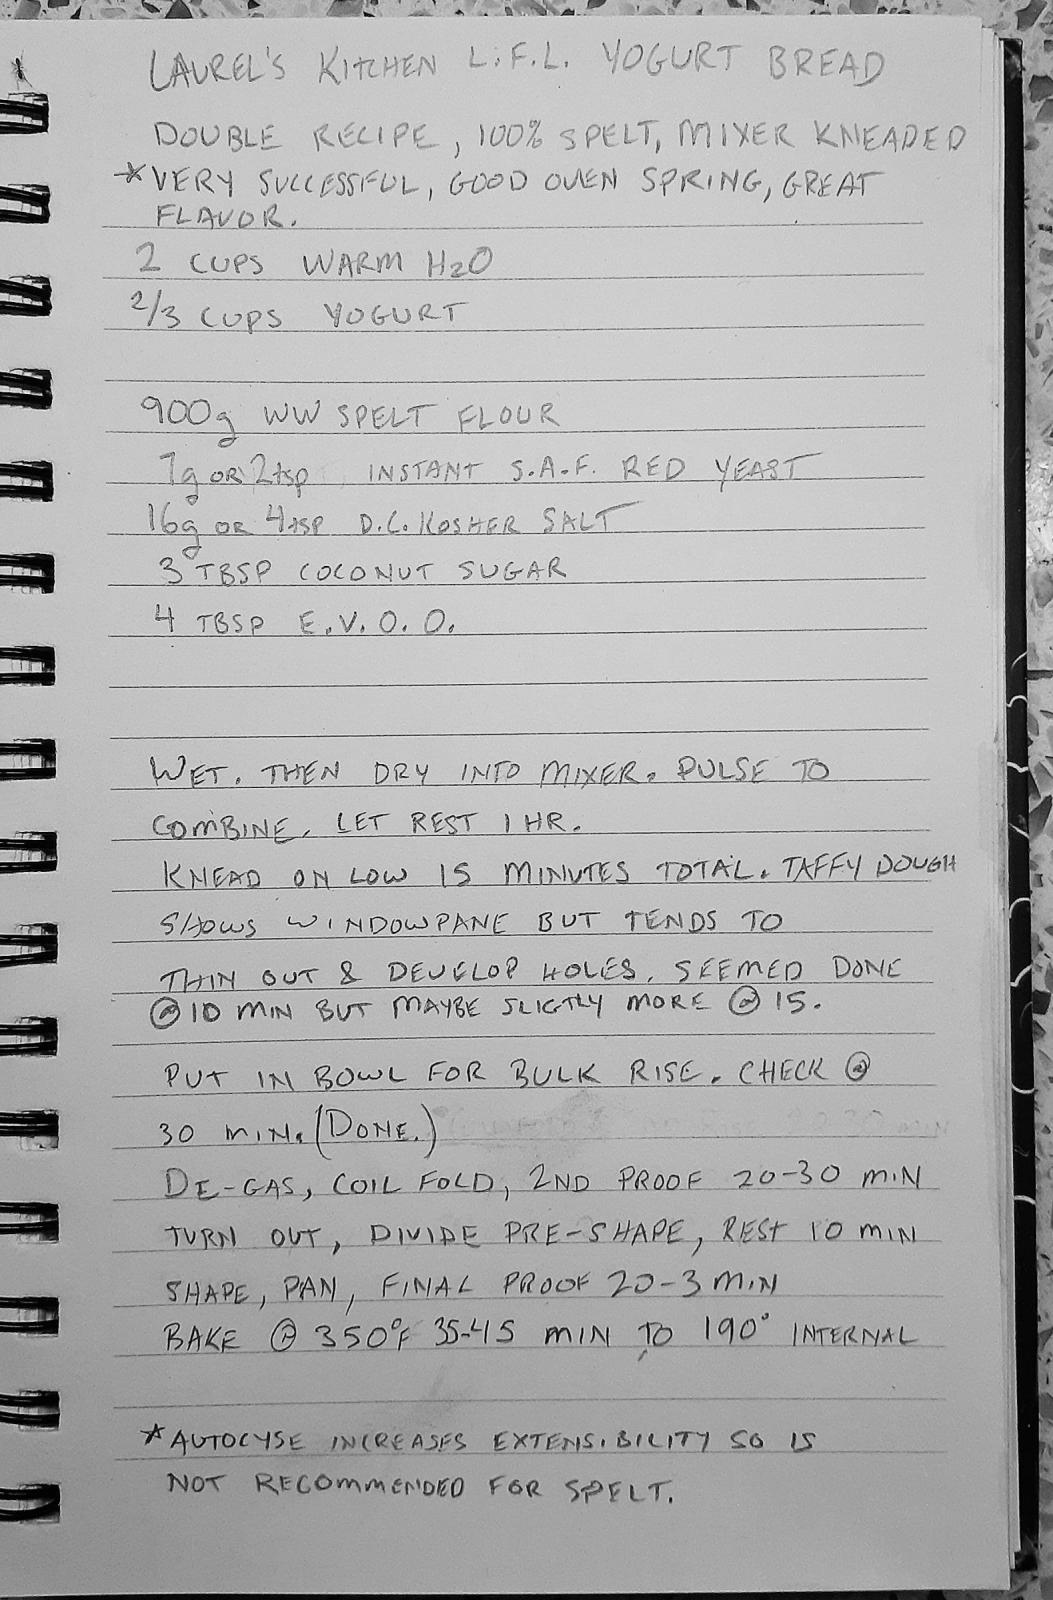 LAUREL'S KITCHEN L.F.L. YOGURT BREAD
DOUBLE RECIPE, 100% SPELT, MIXER KNEADED
*VERY SUCCESSFUL, GOOD OVEN SPRING, GREAT
FLAVOR.
2 CUPS WARM H2O
2/3 CUPS YOGURT
900g WW SPELT FLOUR
7g OR 2tsp INSTANT S.A.F. RED YEAST
16g OR 4tsp D.C. KOSHER SALT
3 TBSP COCONUT SUGAR
4 TBSP E.V.O.O.
WET. THEN DRY INTO MIXER. PULSE TO
COMBINE. LET REST 1 HR.
KNEAD ON LOW 15 MINUTES TOTAL. TAFFY DOUGH
SHOWS WINDOWPANE BUT TENDS TO
THIN OUT & DEVELOP HOLES. SEEMED DONE
@ 10 MIN BUT MAYBE SLIGTLY MORE @ 15.
PUT IN BOWL FOR BULK RISE. CHECK @
30 MIN. (DONE.)
DE-GAS, COIL FOLD, 2ND PROOF 20-30 MIN
TURN OUT, DIVIDE PRE-SHAPE, REST 10 MIN
SHAPE, PAN, FINAL PROOF 20-3 MIN
BAKE @ 350°F 35-45 MIN TO 190° INTERNAL
*AUTOCYSE INCREASES EXTENSIBILITY SO IS
NOT RECOMMENDED FOR SPELT.